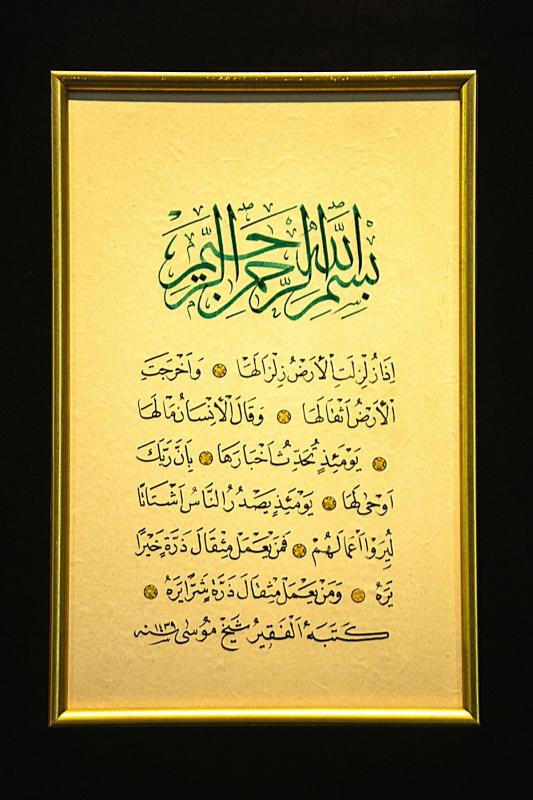 بِسْمِ اللهِ الرَّحْمٰنِ الرَّحِيْمِ
اِذَا زُلْزِلَتِ الْاَرْضُ زِلْزَالَهَا وَاَخْرَجَتِ
الْاَرْضُ اَثْقَالَهَا وَقَالَ الْاِنْسَانُ مَا لَهَا
يَوْمَئِذٍ تُحَدِّثُ اَخْبَارَهَا بِاَنَّ رَبَّكَ
اَوْحٰى لَهَا يَوْمَئِذٍ يَصْدُرُ النَّاسُ اَشْتَاتًا
لِيُرَوْا اَعْمَالَهُمْ فَمَنْ يَعْمَلْ مِثْقَالَ ذَرَّةٍ خَيْرًا
يَرَهُ وَمَنْ يَعْمَلْ مِثْقَالَ ذَرَّةٍ شَرًّا يَرَهُ
كَتَبَهُ الْفَقِيْرُ شَيْخ مُوْسٰى سنه ١٤٣٩